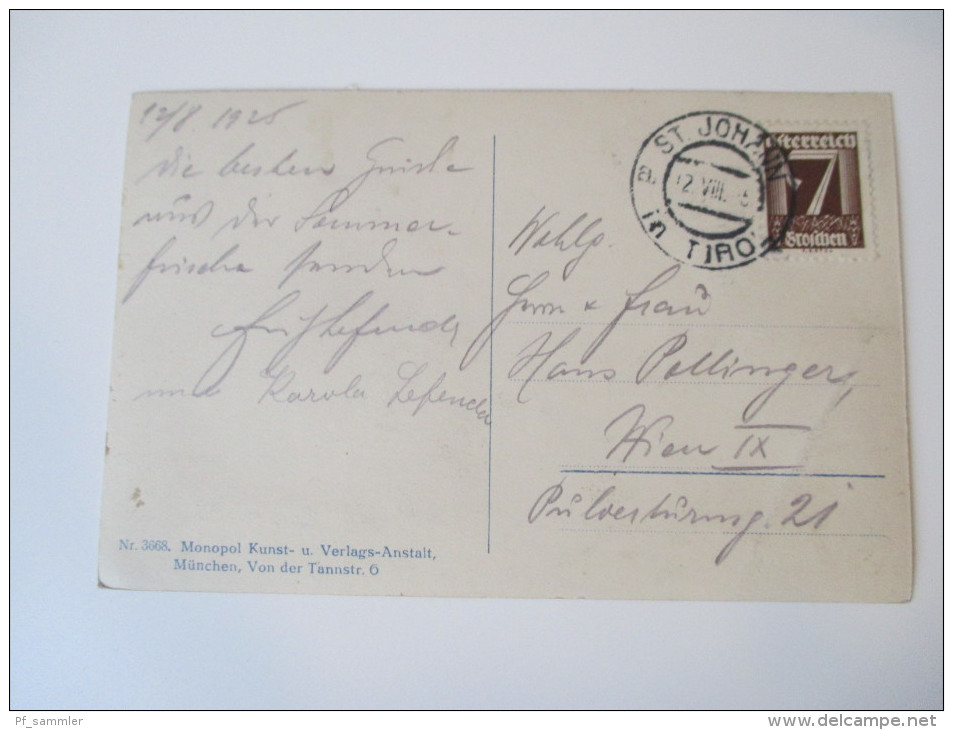 12/8 1925
die besten Grüße
aus der Sommer-
frische senden
Fritz Lefenda
und Karola Lefenda
Nr. 3668. Monopol Kunst- u. Verlags-Anstalt,
München, Von der Tannstr. 6
ST. JOHANN
in TIROL
Österreich
7
Groschen
Wohlg.
Herrn & Frau
Hans Pollinger,
Wien IX
Pulverturmg. 21
Pf_sammler
delcampe.net